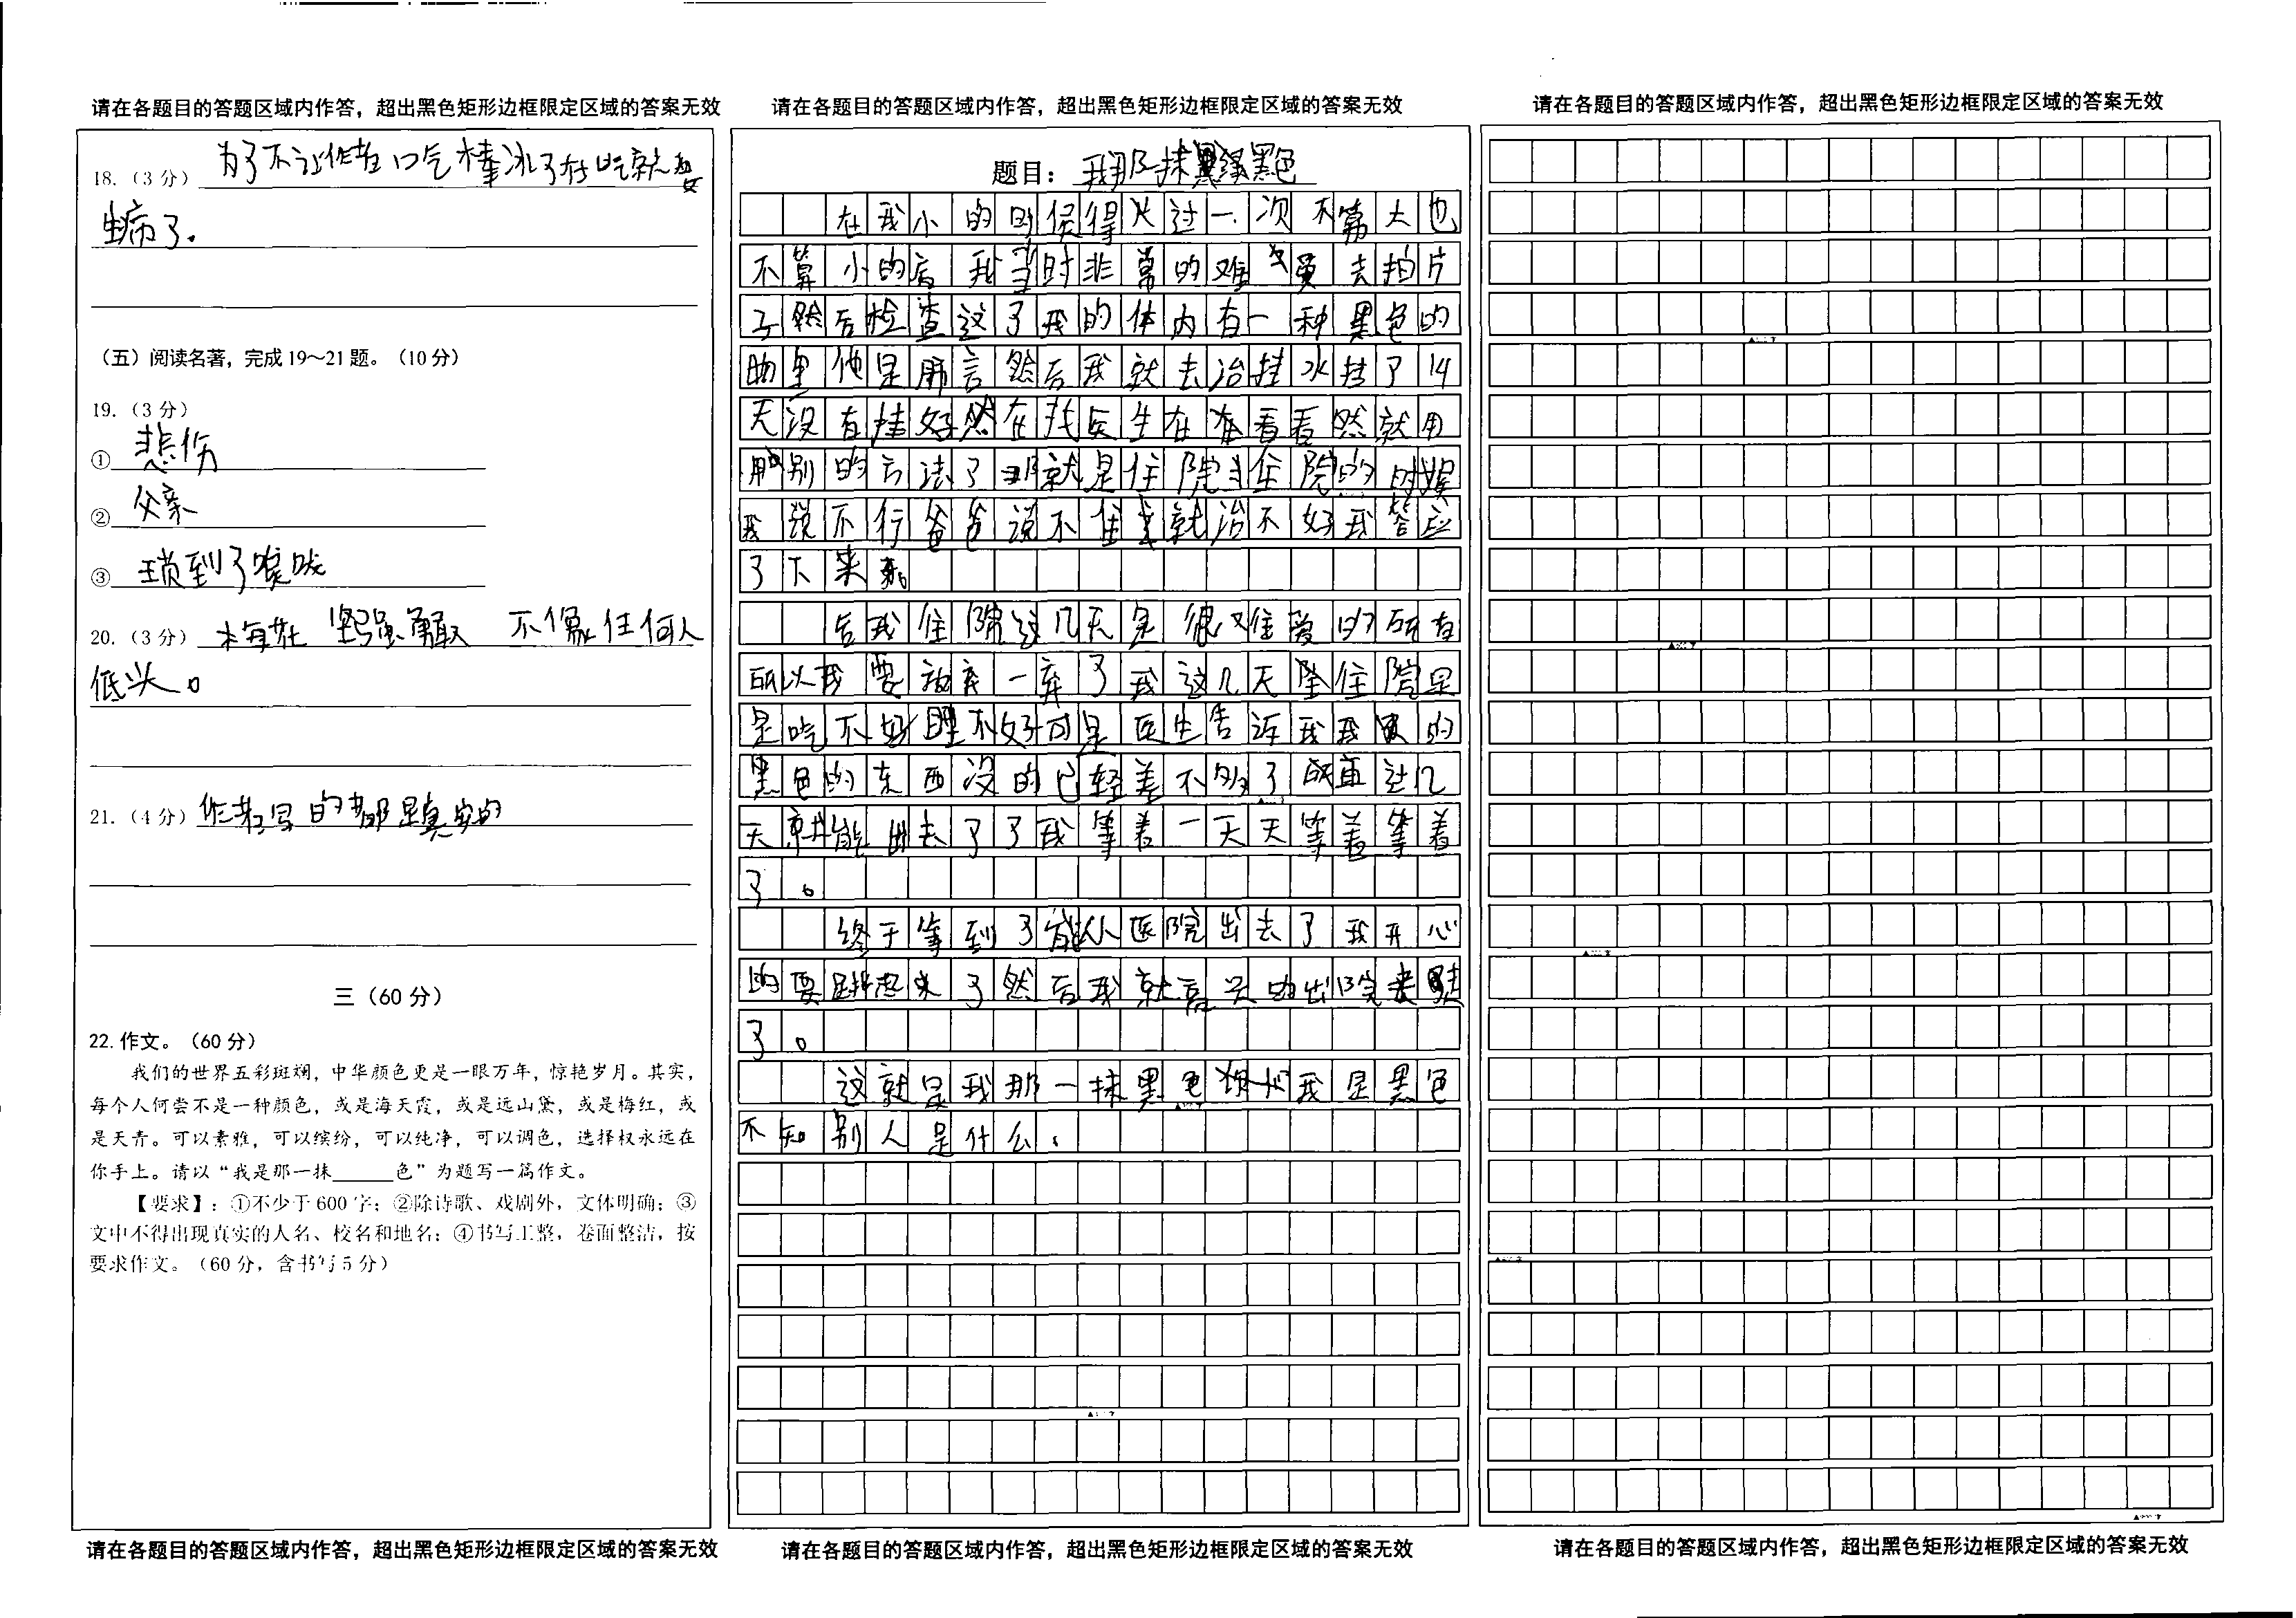 请在各题目的答题区域内作答，超出黑色矩形边框限定区域的答案无效
18.（3 分）为了不让作者口气棒冰了在吃就要
生病了.
（五）阅读名著，完成 19～21 题。（10 分）
19.（3 分）
① 悲伤
② 父亲
③ 琐到了喉咙
20.（3 分）梅花 坚强 勇敢 不像任何人
低头。
21.（4 分）作者写的都是真实的
三（60 分）
22.作文。（60 分）
我们的世界五彩斑斓，中华颜色更是一眼万年，惊艳岁月。其实，
每个人何尝不是一种颜色，或是海天霞，或是远山黛，或是梅红，或
是天青。可以素雅，可以缤纷，可以纯净，可以调色，选择权永远在
你手上。请以“我是那一抹______色”为题写一篇作文。
【要求】：①不少于 600 字；②除诗歌、戏剧外，文体明确；③
文中不得出现真实的人名、校名和地名；④书写工整，卷面整洁，按
要求作文。（60 分，含书写 5 分）
请在各题目的答题区域内作答，超出黑色矩形边框限定区域的答案无效
请在各题目的答题区域内作答，超出黑色矩形边框限定区域的答案无效
题目：我那抹黑色
在我小的时侯得过一次不第大也
不算小的病我当时非常的难受去拍片
了然后检查这了我的体内有一种黑色的
物里他是然后我就去治挂水挂了14
天没有挂好然在找医生在看看然就用
别的方法了那就是住院当住院的时候
我说不行爸爸说不住就治不好我答应
了下来。
后我住院这几天是很难受的所有
所以我要放弃一弃了我这几天住院是
是吃不好睡不好可是医生告诉我我的
黑色的东西没的已轻差不多了在过几
天就能出去了了我等着一天天等着等着
了。
终于等到了能从医院出去了我开心
的要跳起来了然后我就高兴的出院来
了。
这就是我那一抹黑色我是黑色
不知别人是什么.
请在各题目的答题区域内作答，超出黑色矩形边框限定区域的答案无效
请在各题目的答题区域内作答，超出黑色矩形边框限定区域的答案无效
请在各题目的答题区域内作答，超出黑色矩形边框限定区域的答案无效